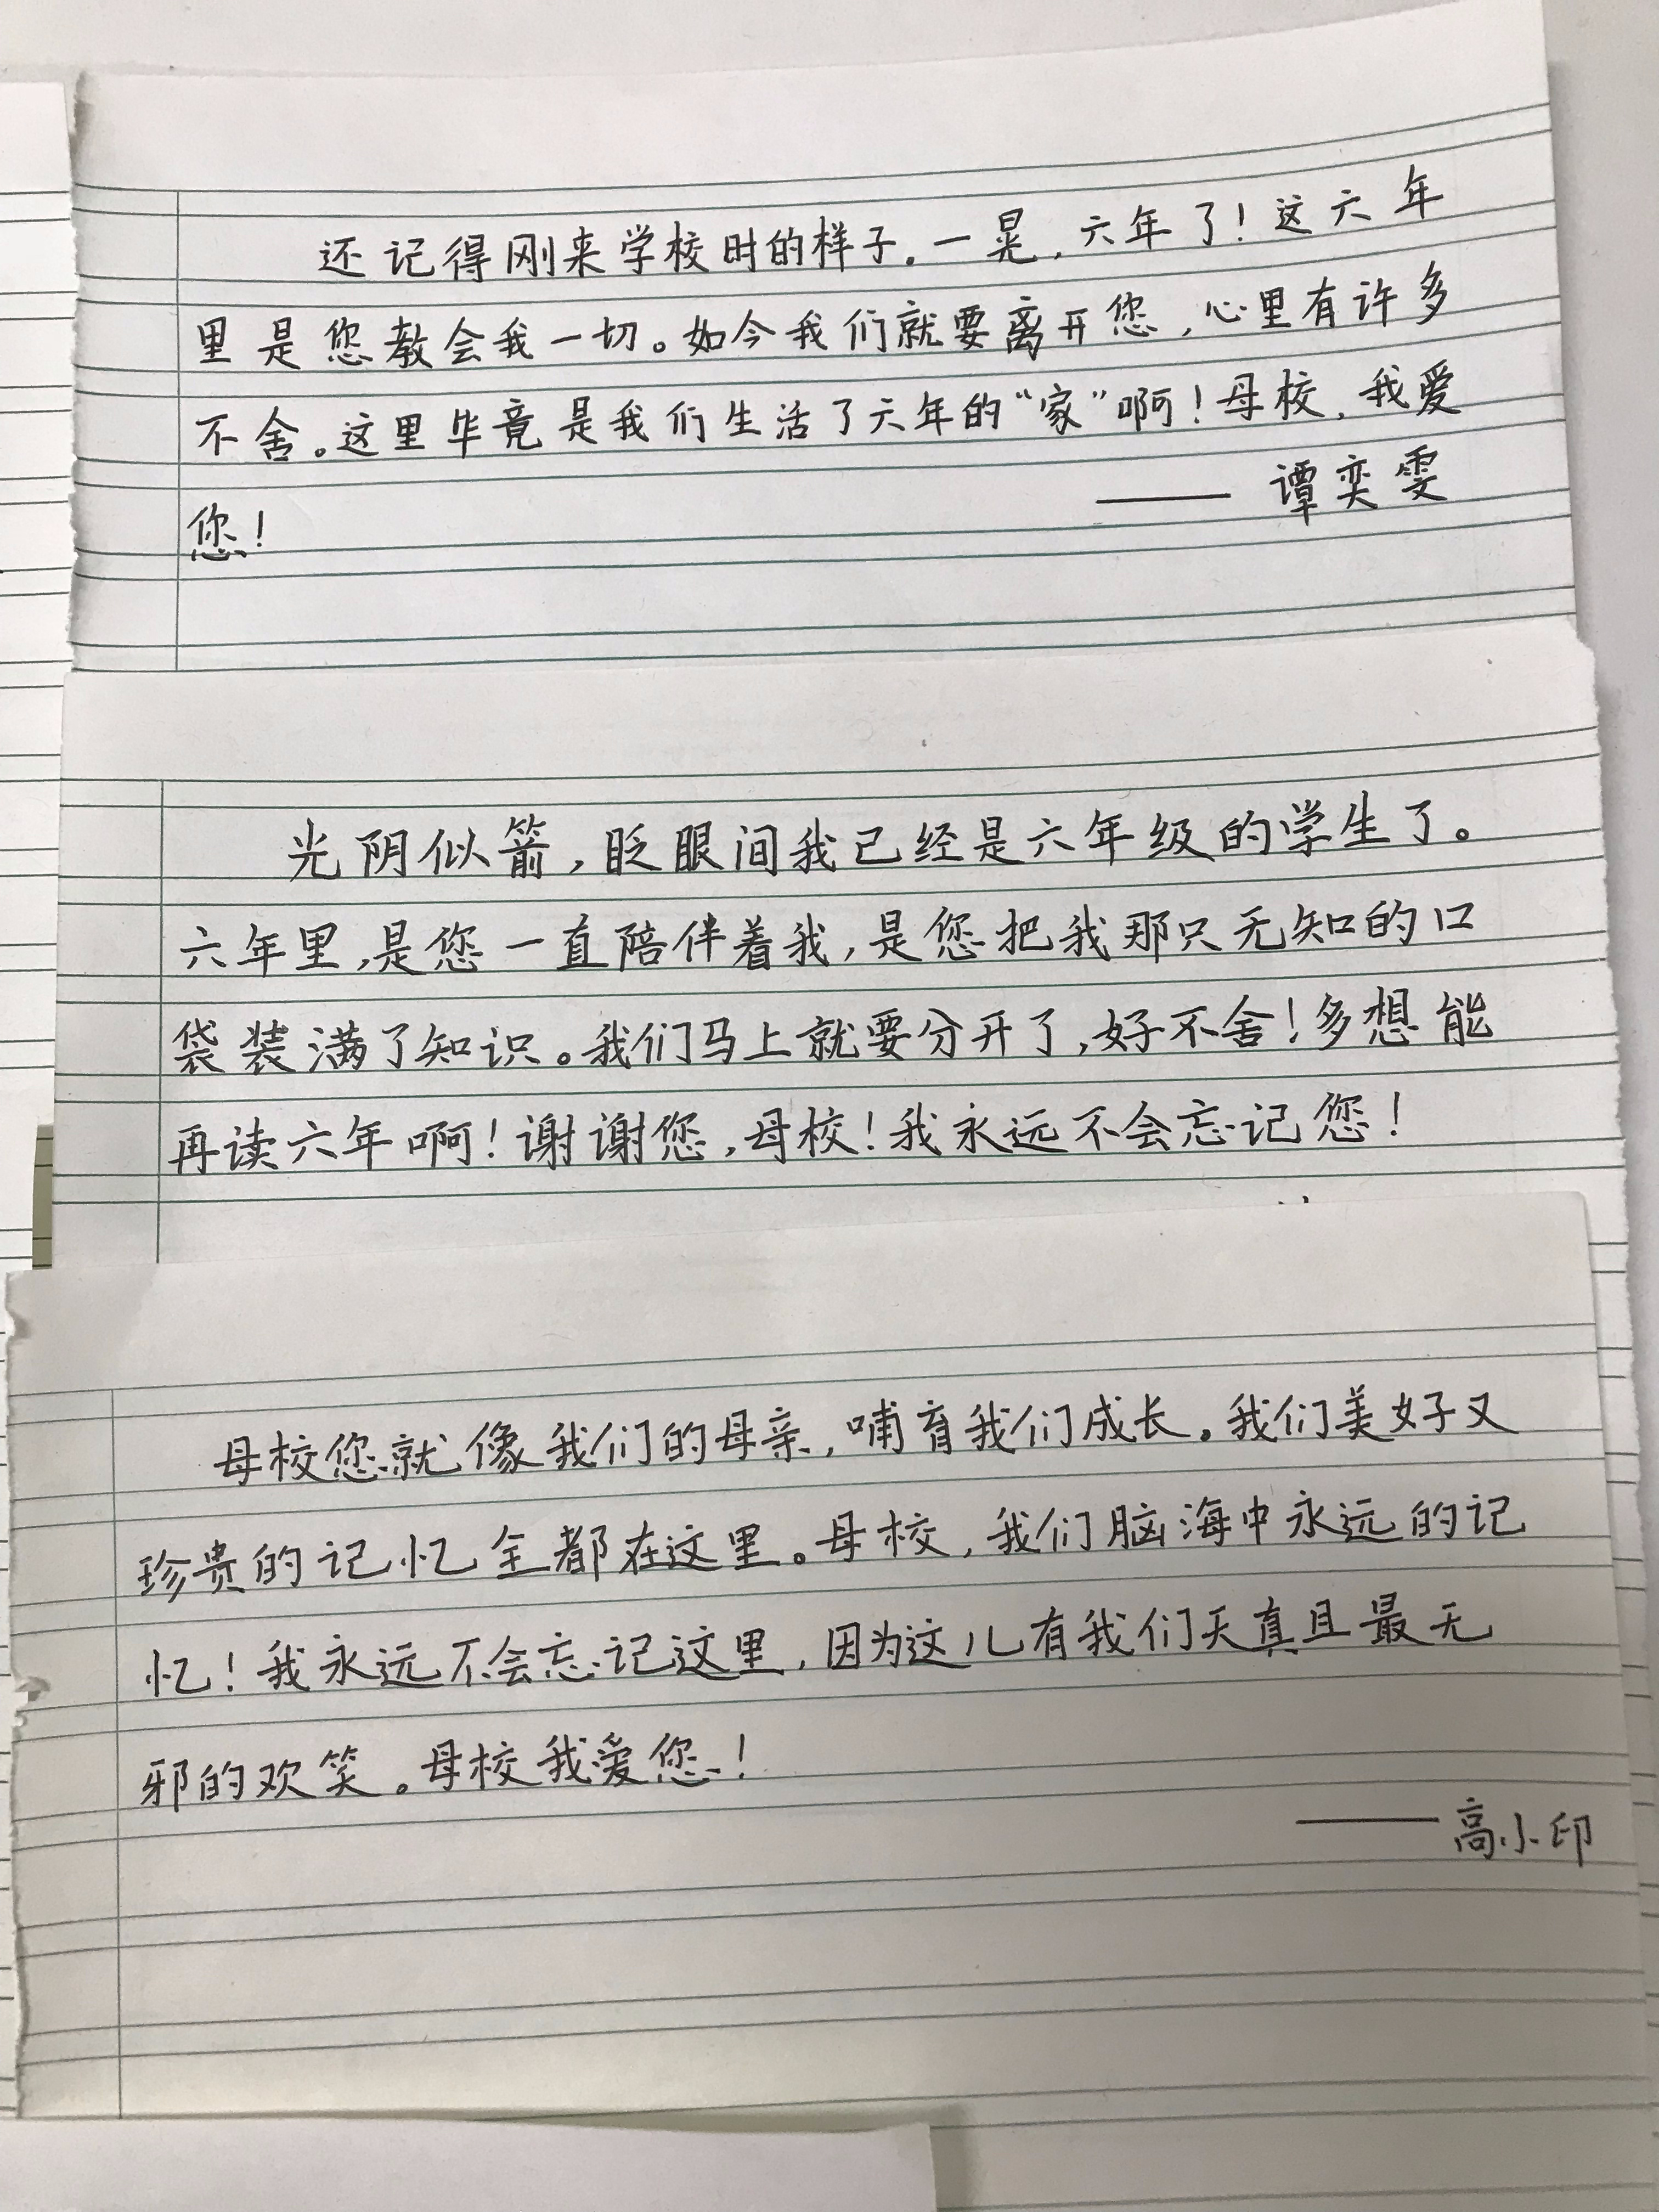 还记得刚来学校时的样子。一晃，六年了！这六年
里是您教会我一切。如今我们就要离开您，心里有许多
不舍。这里毕竟是我们生活了六年的“家”啊！母校，我爱
您！
——谭奕雯
光阴似箭，眨眼间我已经是六年级的学生了。
六年里，是您一直陪伴着我，是您把我那只无知的口
袋装满了知识。我们马上就要分开了，好不舍！多想能
再读六年啊！谢谢您，母校！我永远不会忘记您！
母校您就像我们的母亲，哺育我们成长。我们美好又
珍贵的记忆全都在这里。母校，我们脑海中永远的记
忆！我永远不会忘记这里，因为这儿有我们天真且最无
邪的欢笑。母校我爱您！
——高小印